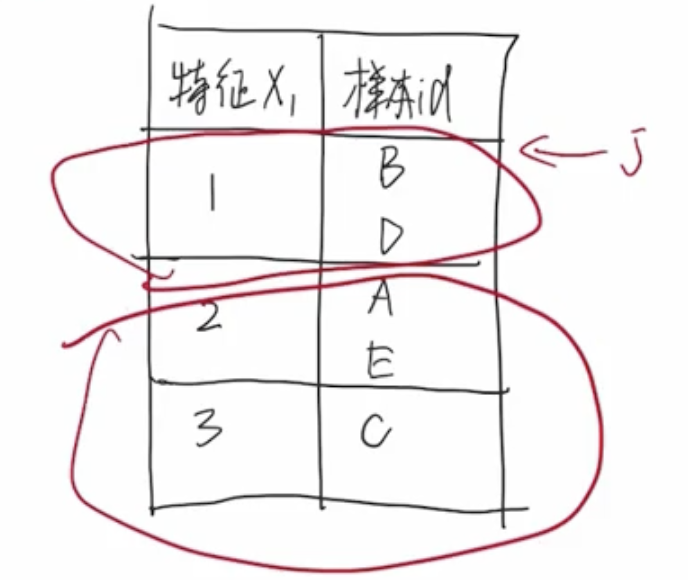 特征X₁ 样本id
1 B
D
J
2 A
E
3 C